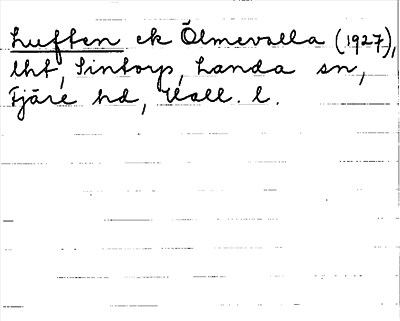 Luften ek Ölmevalla (1927),
lht, Sintorp, Landa sn,
Fjäre hd, Hall. l.